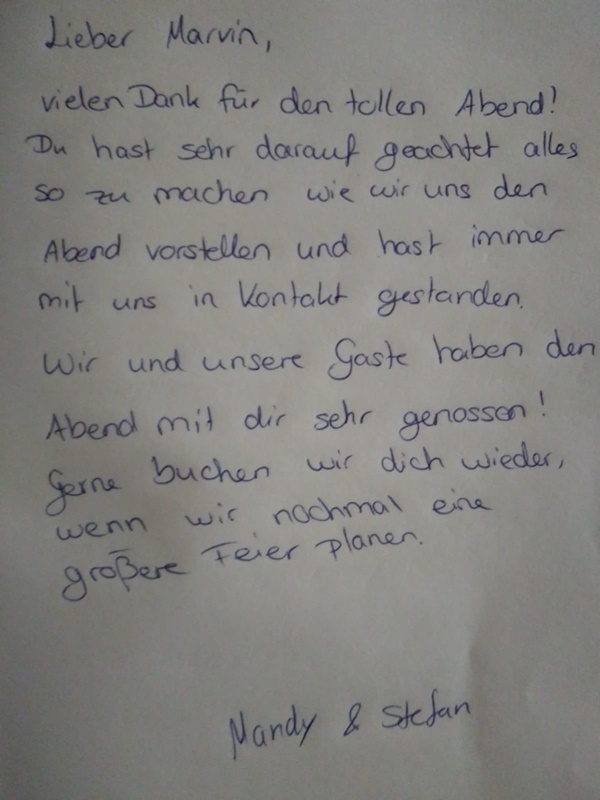 Lieber Marvin,
vielen Dank für den tollen Abend!
Du hast sehr darauf geachtet alles
so zu machen wie wir uns den
Abend vorstellen und hast immer
mit uns in Kontakt gestanden.
Wir und unsere Gäste haben den
Abend mit dir sehr genossen!
Gerne buchen wir dich wieder,
wenn wir nochmal eine
größere Feier planen.
Mandy & Stefan